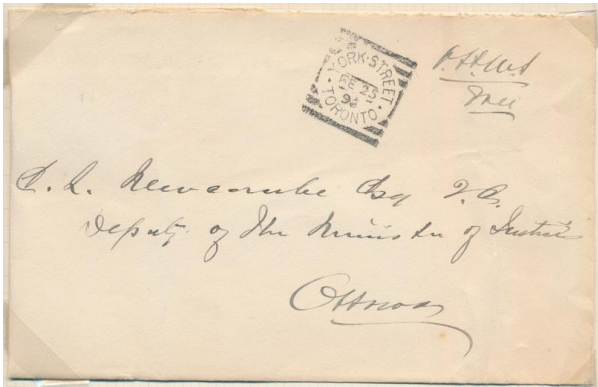 YORK·STREET
FE 25
TORONTO
O.H.M.S
Free
E. L. Newcombe Esq Q.C.
Deputy of the Minister of Justice
Ottawa